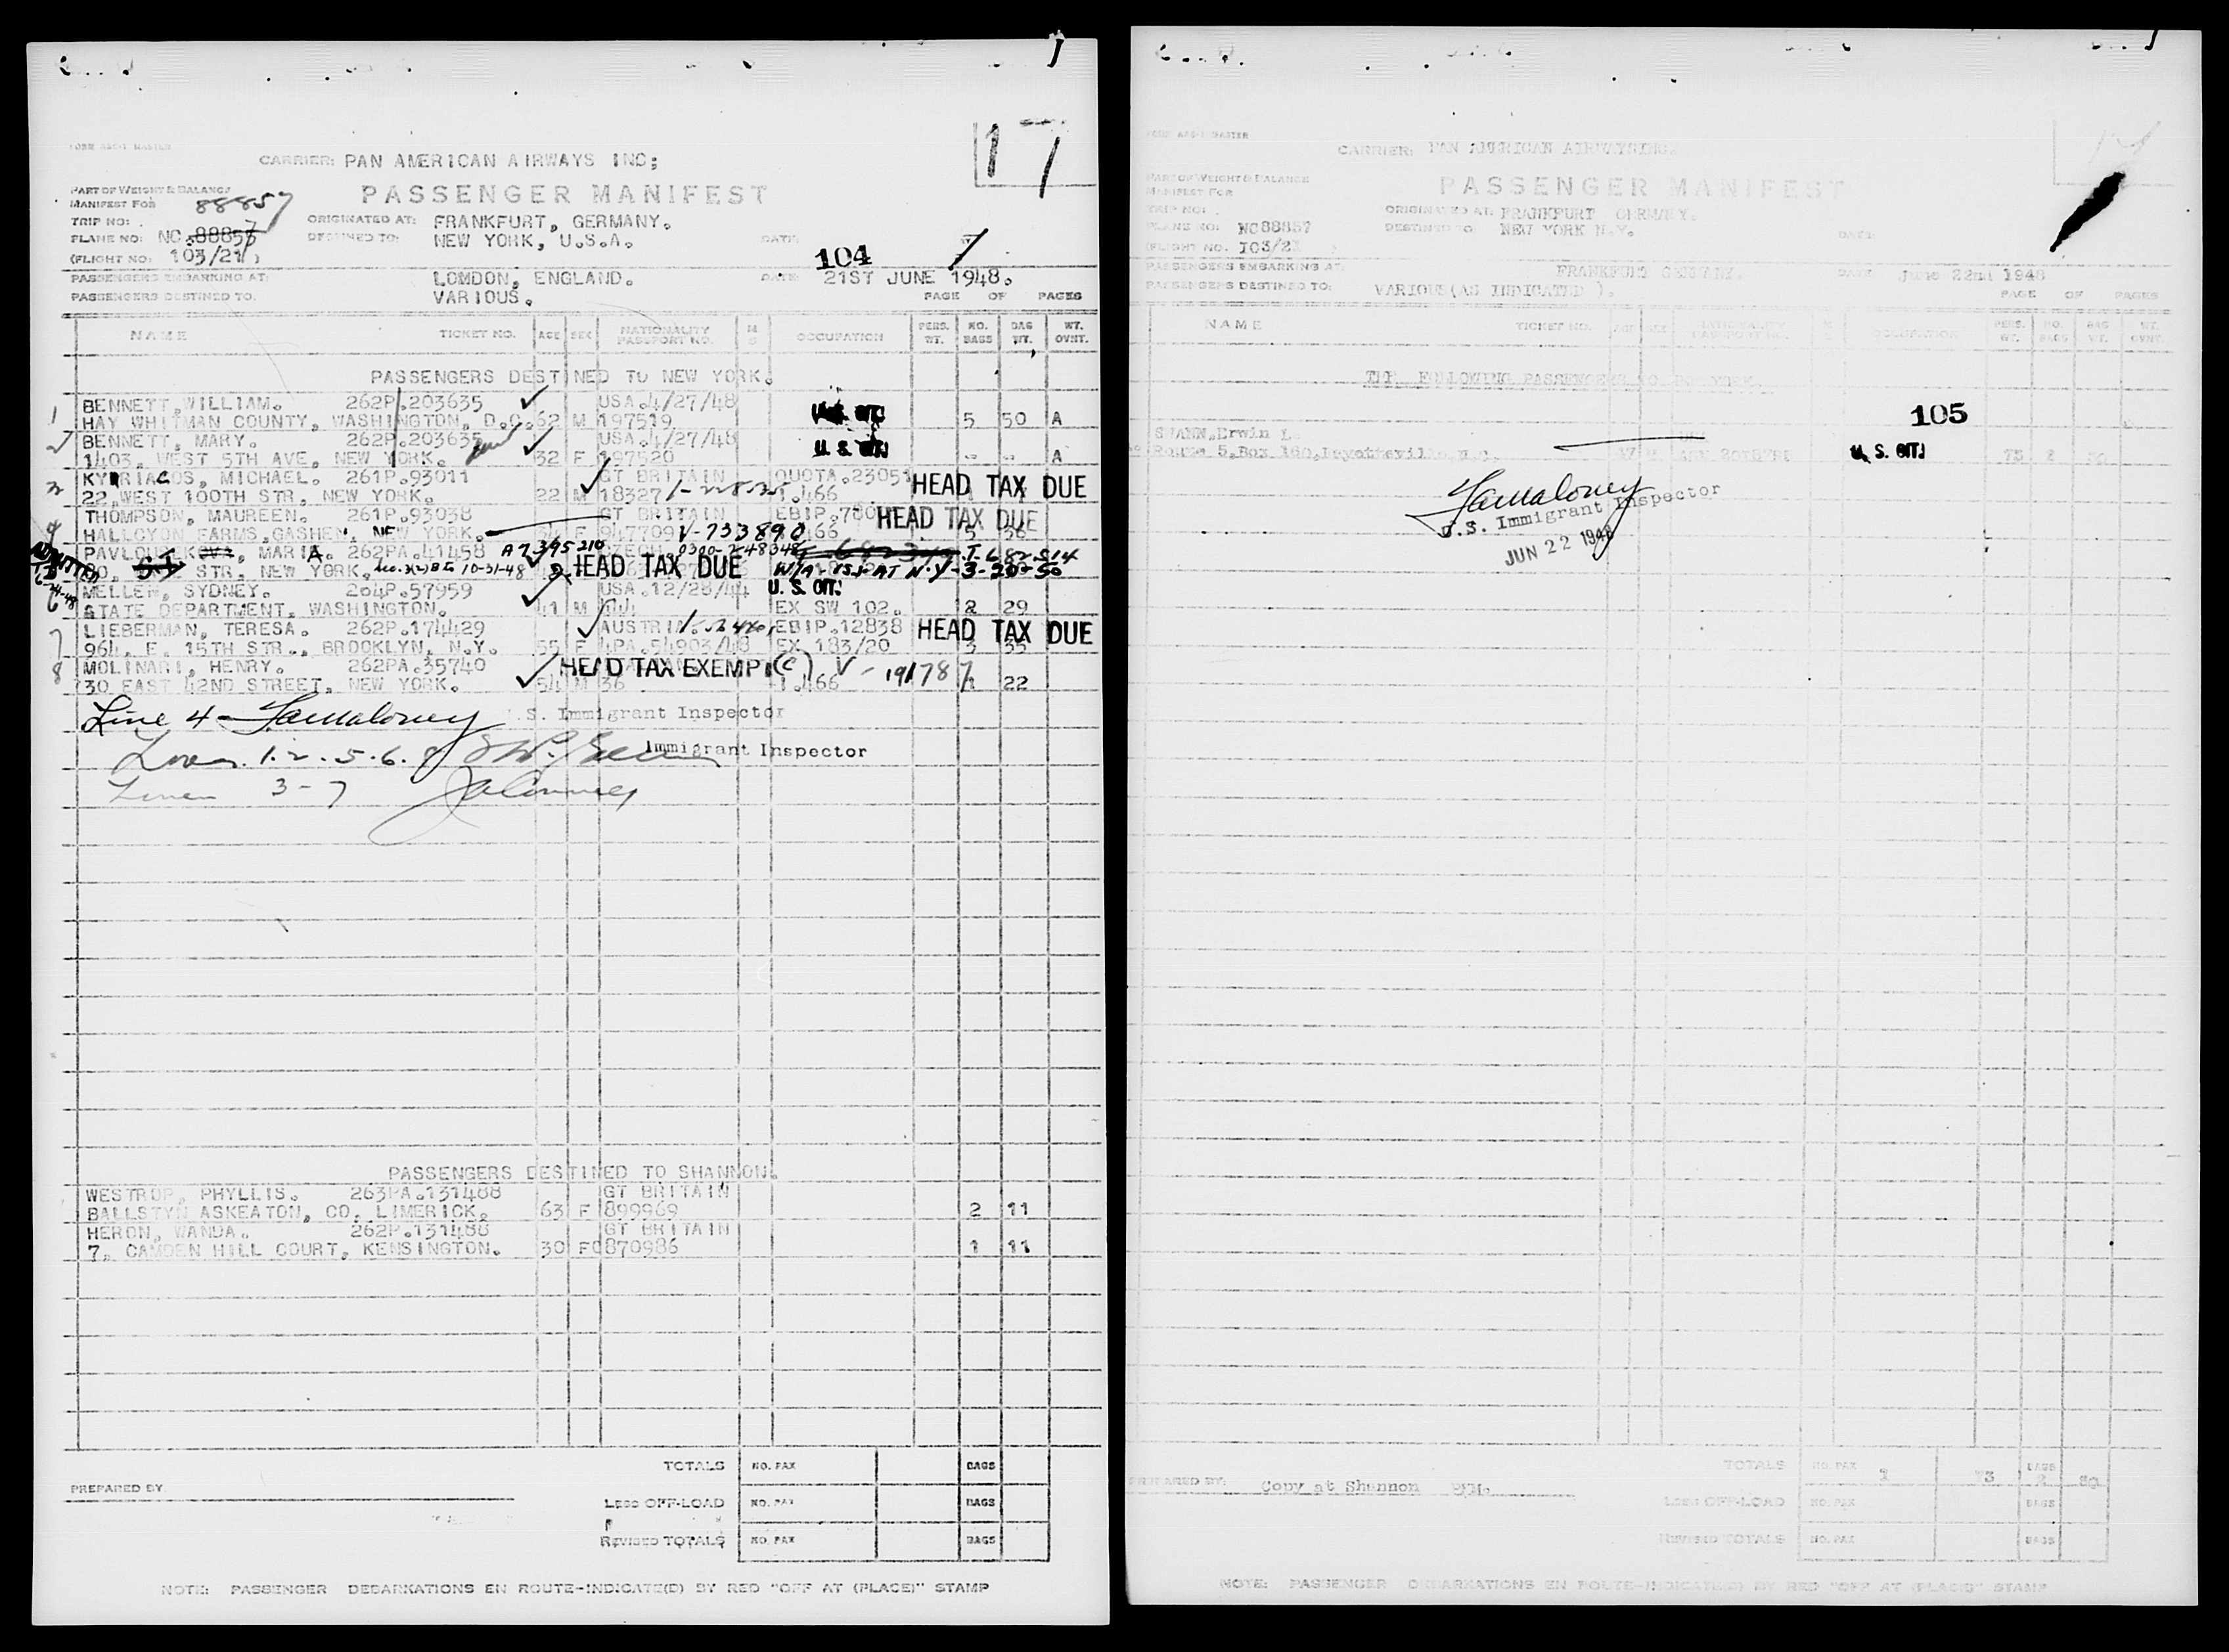 17
FORM ACC-1 MASTER
CARRIER: PAN AMERICAN AIRWAYS INC;
PART OF WEIGHT & BALANCE
MANIFEST FOR 88857
PASSENGER MANIFEST
TRIP NO:
ORIGINATED AT: FRANKFURT, GERMANY.
PLANE NO: NC.88853
DESTINED TO: NEW YORK, U.S.A.
DATE:
(FLIGHT NO: 103/21)
104
PASSENGERS EMBARKING AT: LOMDON, ENGLAND.
DATE 21ST JUNE 1948.
PASSENGERS DESTINED TO. VARIOUS.
PAGE OF PAGES
NAME TICKET NO. AGE SEX NATIONALITY PASSPORT NO. OCCUPATION PERS. WT. NO. BAGS BAG WT. WT. OVNT.
PASSENGERS DESTINED TO NEW YORK.
1 BENNETT, WILLIAM. 262P.203635 USA.4/27/48 U.S. CIT.
HAY WHITMAN COUNTY, WASHINGTON, D.C. 62 M 197519 5 50 A
BENNETT, MARY. 262P.203635 USA.4/27/48 U.S. CIT.
1403, WEST 5TH AVE, NEW YORK. 32 F 197520 -- -- A
KYRIACOS, MICHAEL. 261P.93011 GT BRITAIN QUOTA.23051 HEAD TAX DUE
22,WEST 100TH STR, NEW YORK. 22 M 18327 .466
THOMPSON, MAUREEN. 261P.93038 GT BRITAIN EBIP. HEAD TAX DUE
HALLCYON FARMS,GASHEN, NEW YORK. F 947709 V-733890 5 36
PAVLOU, MARIA. 262PA.41458 A7395210 0300-248348 T-682514
STR, NEW YORK. 10-31-48 HEAD TAX DUE ISS. AT N.Y-3-20-50
6 MELLER, SYDNEY. 264P.57959 USA.12/28/44 U.S. CIT.
STATE DEPARTMENT, WASHINGTON. 41 M EX SW 102. 2 29
7 LIEBERMAN, TERESA. 262P.174429 AUSTRIA EBIP.12838 HEAD TAX DUE
964, E. 15TH STR., BROOKLYN, N.Y. 55 F 4PA.54903/48 EX 183/20 3 35
8 MOLINARI, HENRY. 262PA.35740 HEAD TAX EXEMP (C) V-191787
30 EAST 42ND STREET, NEW YORK. 54 M 36 .466 1 22
Line 4 - Maloney U.S. Immigrant Inspector
Lines 1.2.5.6.8 Immigrant Inspector
Lines 3-7
PASSENGERS DESTINED TO SHANNON.
WESTROP, PHYLLIS. 263PA.131488 GT BRITAIN
BALLSTYN ASKEATON, CO, LIMERICK. 63 F 899969 2 11
HERON, WANDA. 262P.131488 GT BRITAIN
7, CAMDEN HILL COURT, KENSINGTON. 30 F C870986 1 11
TOTALS NO. PAX BAGS
PREPARED BY
LESS OFF-LOAD NO. PAX BAGS
REVISED TOTALS NO. PAX BAGS
NOTE: PASSENGER DEBARKATIONS EN ROUTE-INDICATE(D) BY RED "OFF AT (PLACE)" STAMP
CARRIER: PAN AMERICAN AIRWAYS INC.
PART OF WEIGHT & BALANCE
MANIFEST FOR
PASSENGER MANIFEST
TRIP NO:
ORIGINATED AT: FRANKFURT GERMANY.
PLANE NO: NC88857
DESTINED TO NEW YORK N.Y.
DATE:
(FLIGHT NO. 103/21
PASSENGERS EMBARKING AT: FRANKFURT GERMANY.
DATE June 22nd 1948
PASSENGERS DESTINED TO: VARIOUS(AS INDICATED ).
PAGE OF PAGES
NAME TICKET NO. AGE SEX OCCUPATION PERS. WT. NO. BAGS BAG WT. WT. OVNT.
THE FOLLOWING PASSENGERS TO NEW YORK.
105
SWANN, Erwin L.
Route 5, Box 160, U.S. CIT. 73 2
Maloney
U.S. Immigrant Inspector
JUN 22 1948
TOTALS NO. PAX 1 73 BAGS 2
PREPARED BY: Copy at Shannon
LESS OFF-LOAD NO. PAX BAGS
REVISED TOTALS NO. PAX BAGS
NOTE: PASSENGER DEBARKATIONS EN ROUTE-INDICATE(D) BY RED "OFF AT (PLACE)" STAMP